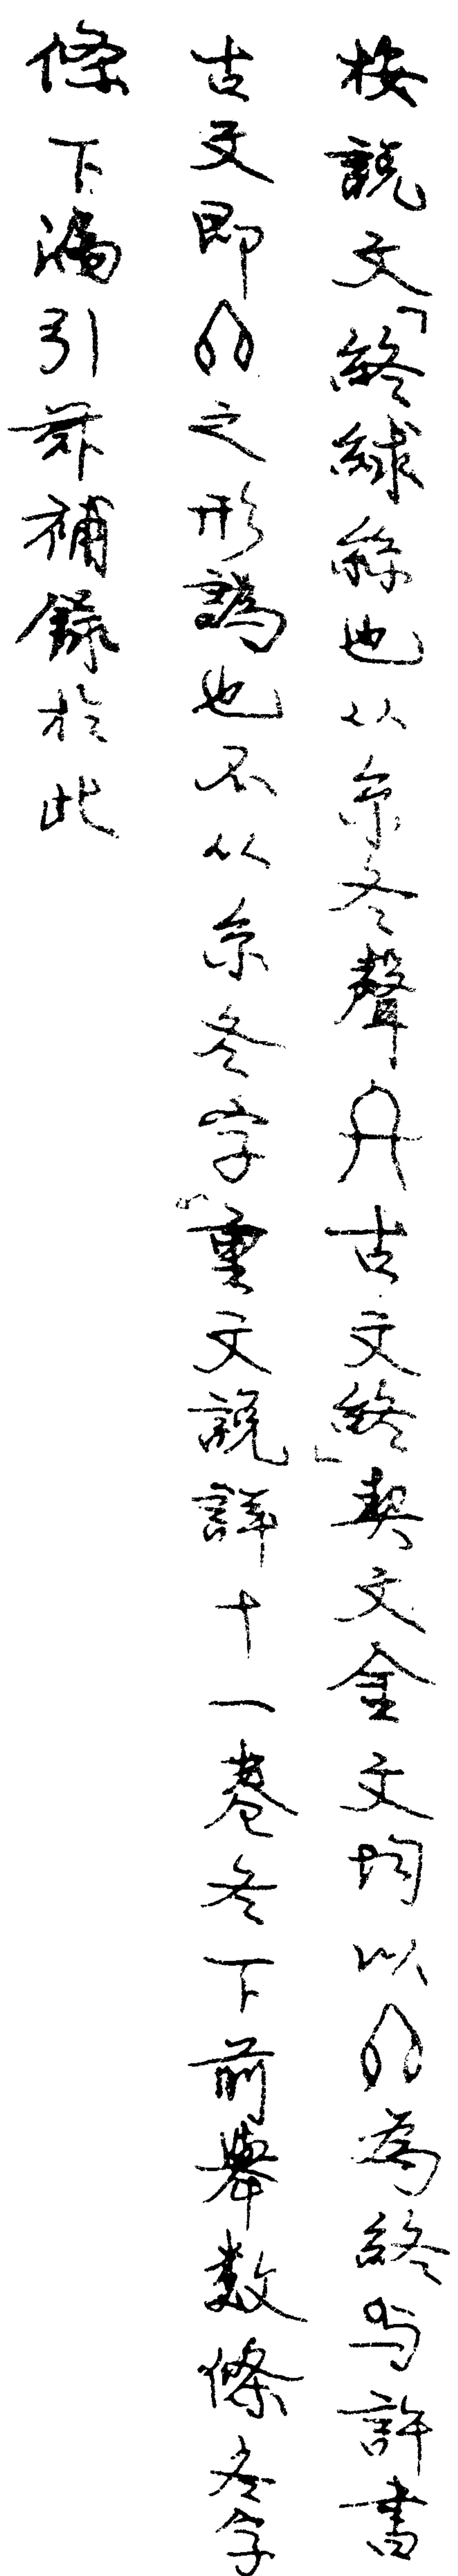 按説文「終絿絲也从糸冬聲𠔾古文終」契文金文均以為終与許書
古文即之形譌也不从糸冬字重文説詳十一卷冬下前舉数條冬字
條下漏引茲補錄於此